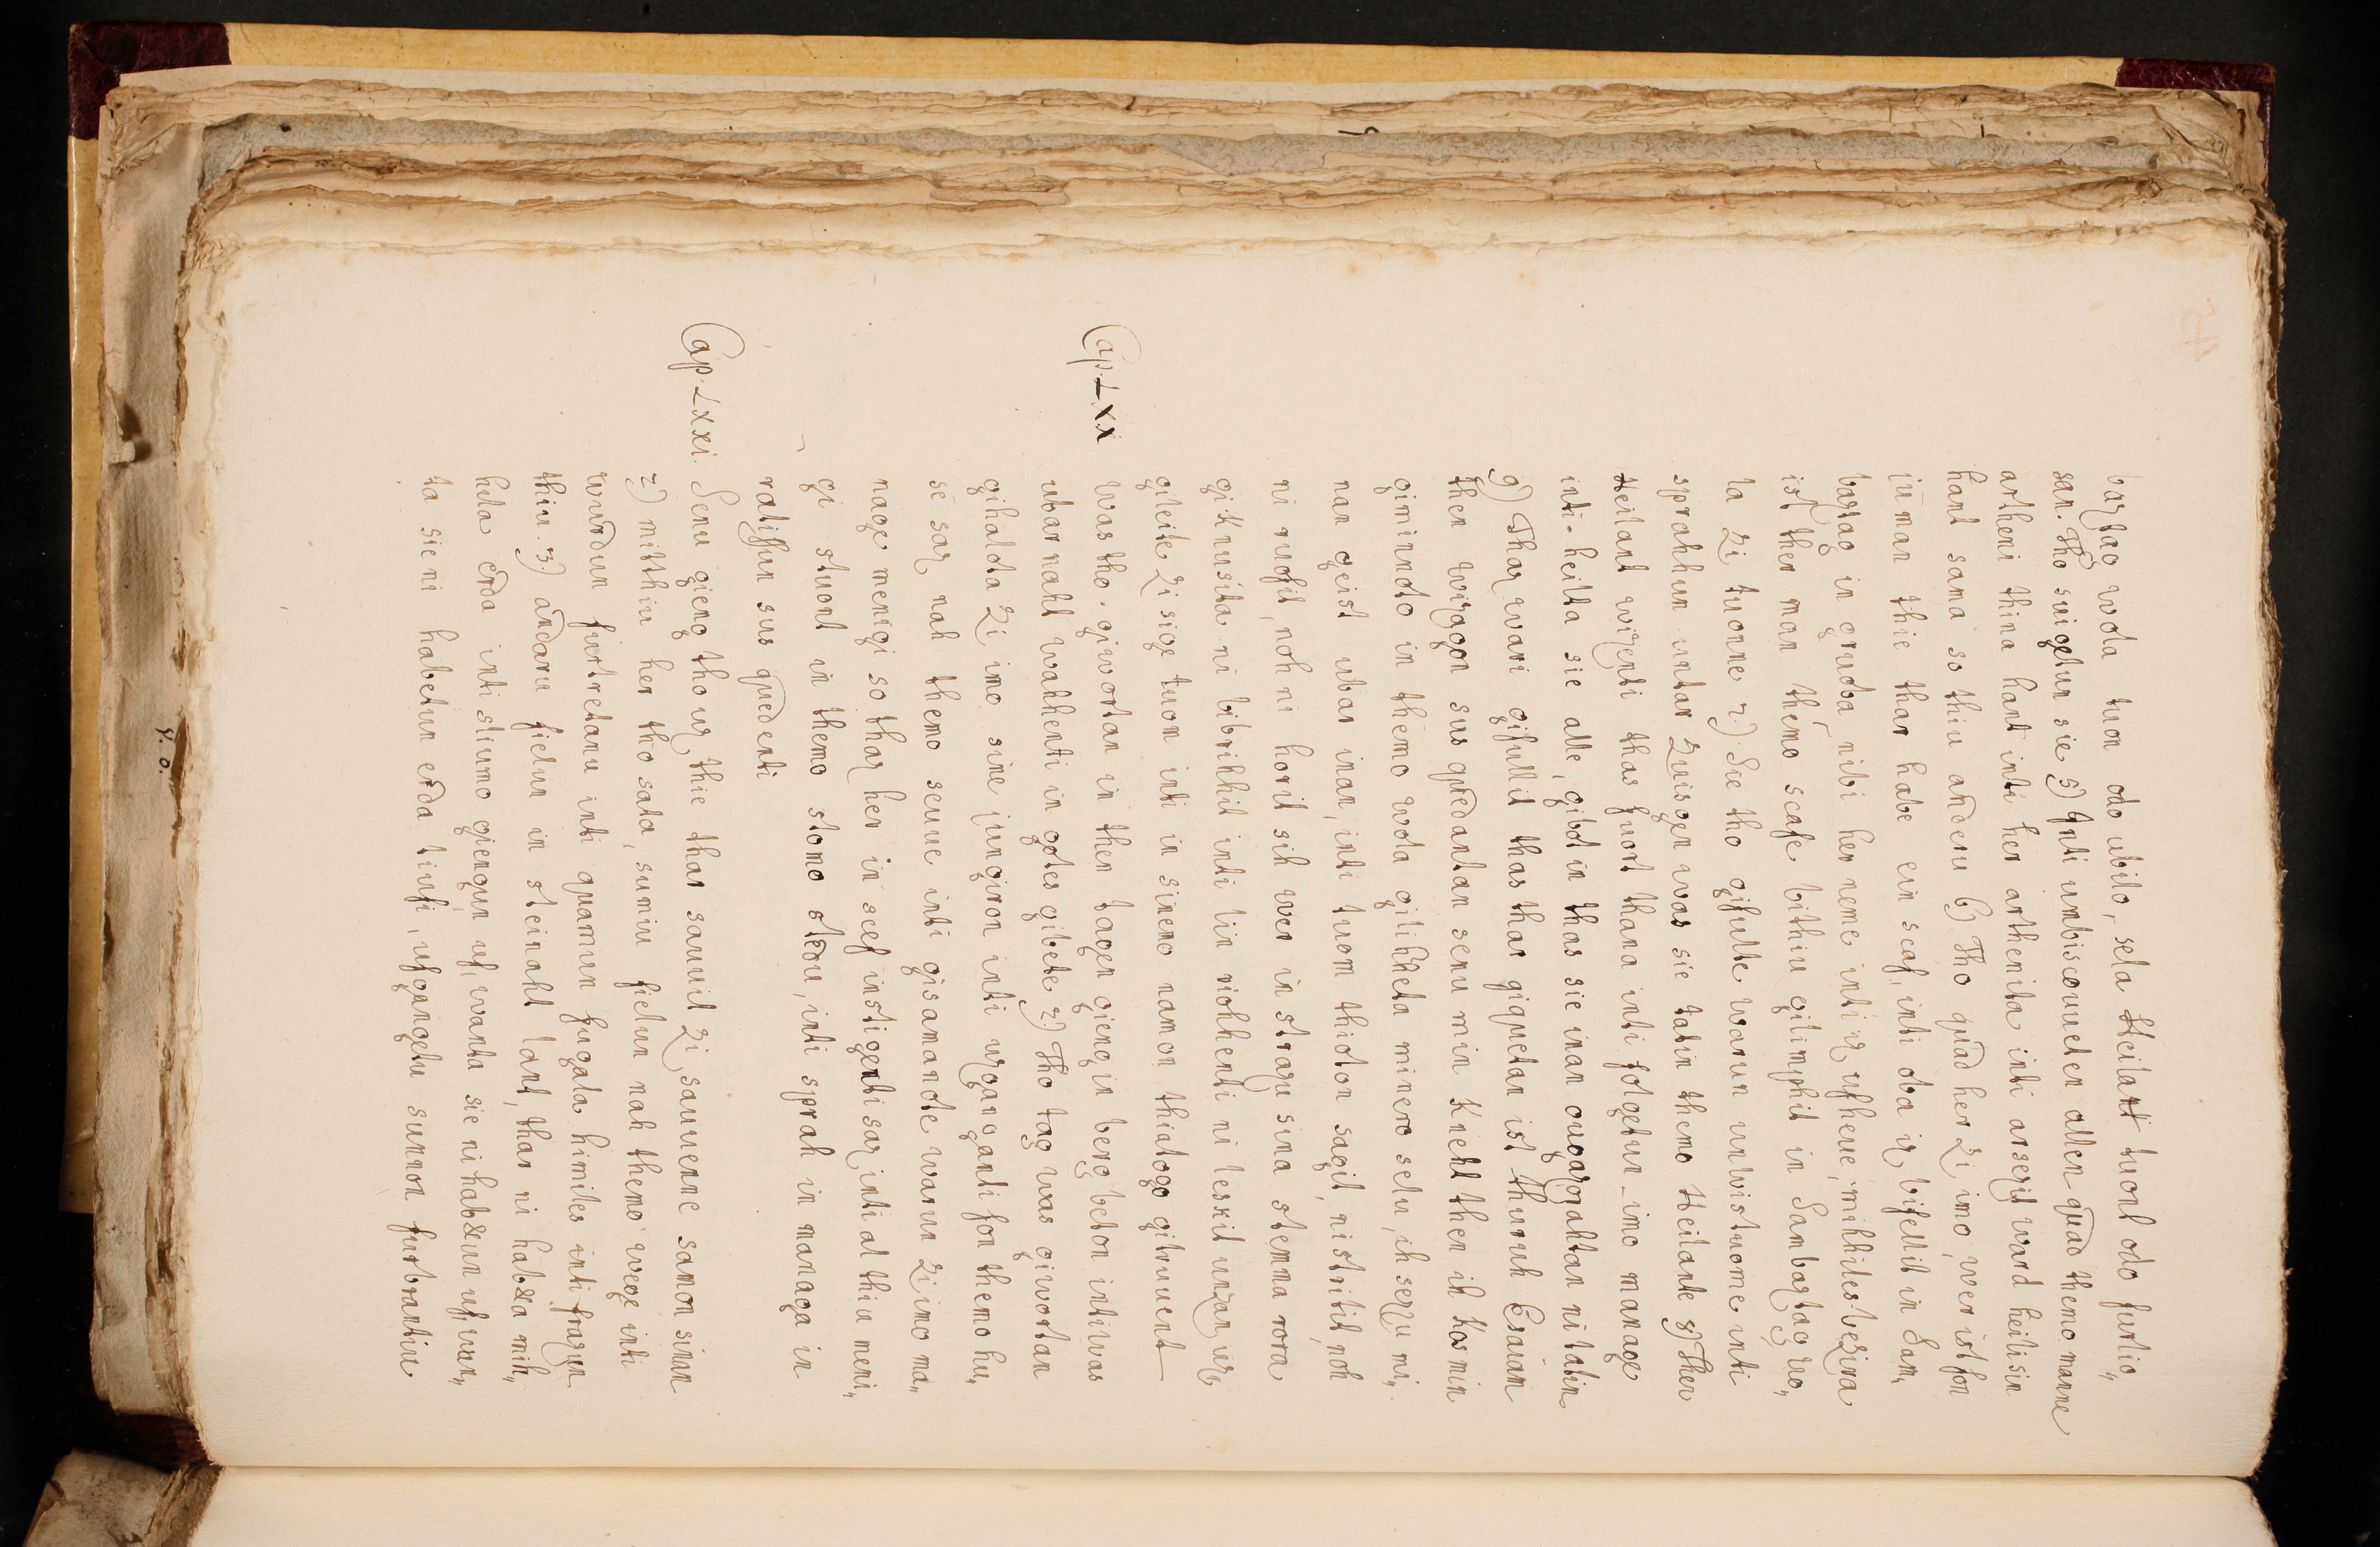 baztag wola tuon odo ubilo, sela Heilant tuont odo furlio„
san. Tho suigetun sie 5) Inti umbiscouueten allen quad themo manne
artheni thina hant inti her arthenita inti arsezit ward heilisin
hant sana so thiu anderu 6) Tho quad her zi imo, wer ist fon
iu man thie thar habe ein scaf, inti oba iz bifellit in Sam„
baztag in gruoba nibi her neme inti iz ufheue, mihhiles bezira
ist ther man themo scafe bithiu gilimphit in Sambaztag wo„
la zi tuonne 7) Sie tho gifulte warun unwistuome inti
sprahhun untar zuisgen was sie tatin themo Heilante 8) Ther
Heilant wizenti thas fuort thana inti folgetun imo manage
inti heilta sie alle, gibot in thas sie inan ougazohtan ni tatin
9) Thaz wari gifullit thas thar giquetan ist thuruh Esaiam
then wizagon sus quedantan senu min Kneht then ih kos min
giminnoto in themo wola gilihheta minero selu, ih sezu mi„
nan geist ubar inan, inti tuom thioton sagit, ni stritit, noh
ni ruofit, noh ni horit sih wer in strazu sina stemna rora
giknusita ni bibrihhit inti lin riohhenti ni leskit unzan, iz„
gileite zi sige tuom inti in sinemo namon thiatogo gitruuent
Cap. LXX was tho. giwortan in then tagen gieng in berg beton inti was
ubar naht wahhenti in gotes gibete 2) Tho tag was giwortan
gihalota zi imo sine jungiron inti uzgangenti fon themo hu„
se saz nah themo seuue inti gisamanote warun zi imo ma„
nage menigi so thaz her in scef instigenti saz inti al thiu meni„
gi stuont in themo stomo stedu, inti sprah in managa in
ratissun sus quedenti
Cap. LXXI. Senu gieng tho uz, thie thar sauuit zi sauuenne samon sinan
2) mitthiu her tho sata, sumiu fielun nah themo wege inti
wurdun furtretanu inti quamun fugala himiles inti frazun
thiu. 3) andaru fielun in steinaht lant, thar ni hab&a mih„
hila erda inti sliumo giengun uf, wanta sie ni hab&un uf, wan„
ta sie ni habetun erda tiufi, ufgangetu sunnon furbrantiu
4. o.